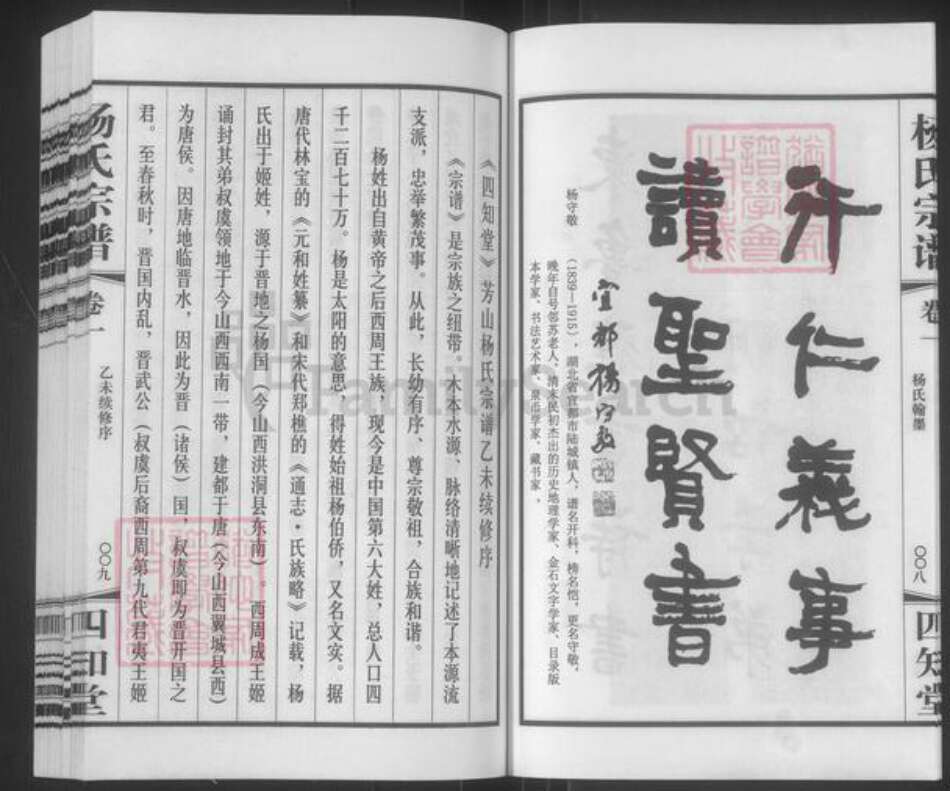 杨氏宗谱
卷一
杨氏翰墨
〇〇八
四知堂
行仁義事
讀聖賢書
宜都楊守敬
杨守敬
(1839—1915),湖北省宜都市陆城镇人,谱名开科,榜名恺,更名守敬,
晚年自号邻苏老人,清末民初杰出的历史地理学家、金石文字学家、目录版
本学家、书法艺术家、泉币学家、藏书家。
《四知堂》芳山杨氏宗谱乙未续修序
《宗谱》是宗族之纽带。木本水源、脉络清晰地记述了本源流
支派,忠举繁茂事。从此,长幼有序、尊宗敬祖,合族和谐。
杨姓出自黄帝之后西周王族,现今是中国第六大姓,总人口四
千二百七十万。杨是太阳的意思,得姓始祖杨伯侨,又名文实。据
唐代林宝的《元和姓纂》和宋代郑樵的《通志·氏族略》记载,杨
氏出于姬姓,源于晋地之杨国(今山西洪洞县东南)。西周成王姬
诵封其弟叔虞领地于今山西西南一带,建都于唐(今山西翼城县西)
为唐侯。因唐地临晋水,因此为晋(诸侯)国,叔虞即为晋开国之
君。至春秋时,晋国内乱,晋武公(叔虞后裔西周第九代君夷王姬
杨氏宗谱
卷一
乙未续修序
〇〇九
四知堂
FamilySearch